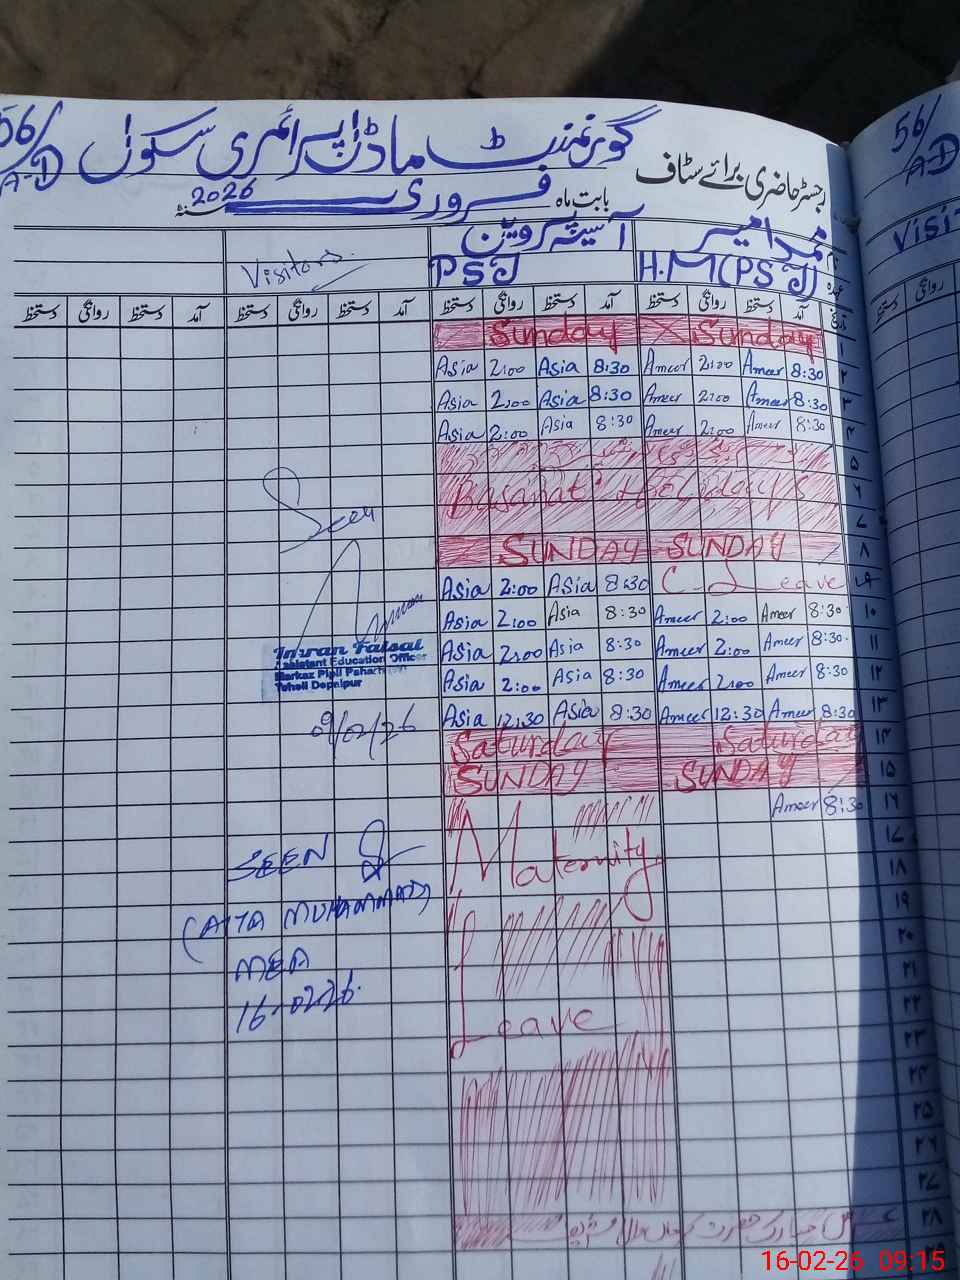 56/A-D گورنمنٹ ماڈل پرائمری سکول
رجسٹر حاضری برائے سٹاف
بابت ماہ فروری سنہ 2026
56/A-D
نام محمد امیر آسیہ پروین Visitors
عہدہ H.M (PST) PST
Visi
تاریخ آمد دستخط روانگی دستخط آمد دستخط روانگی دستخط آمد دستخط روانگی دستخط آمد دستخط روانگی دستخط
روانگی دستخط
Sunday X Sunday ۱
Asia 2:00 Asia 8:30 Ameer 2:00 Ameer 8:30 ۲
Asia 2:00 Asia 8:30 Ameer 2:00 Ameer 8:30 ۳
Asia 2:00 Asia 8:30 Ameer 2:00 Ameer 8:30 ۴
۵
Basanat Holidays ۶
۷
SUNDAY SUNDAY ۸
Asia 2:00 Asia 8:30 C. Leave ۹
Asia 2:00 Asia 8:30 Ameer 2:00 Ameer 8:30 ۱۰
Asia 2:00 Asia 8:30 Ameer 2:00 Ameer 8:30 ۱۱
Asia 2:00 Asia 8:30 Ameer 2:00 Ameer 8:30 ۱۲
Asia 12:30 Asia 8:30 Ameer 12:30 Ameer 8:30 ۱۳
Saturday Saturday ۱۴
SUNDAY SUNDAY ۱۵
Ameer 8:30 ۱۶
Maternity
Leave
۱۷
۱۸
۱۹
۲۰
۲۱
۲۲
۲۳
۲۴
۲۵
۲۶
۲۷
۲۸
۲۹
Seen
Imran Faisal
Assistant Education Officer
Markaz Pipli Pahar
Tehsil Depalpur
9/02/26
SEEN
(ATTA MUHAMMAD)
MEA
16-02-26
16-02-26 09:15